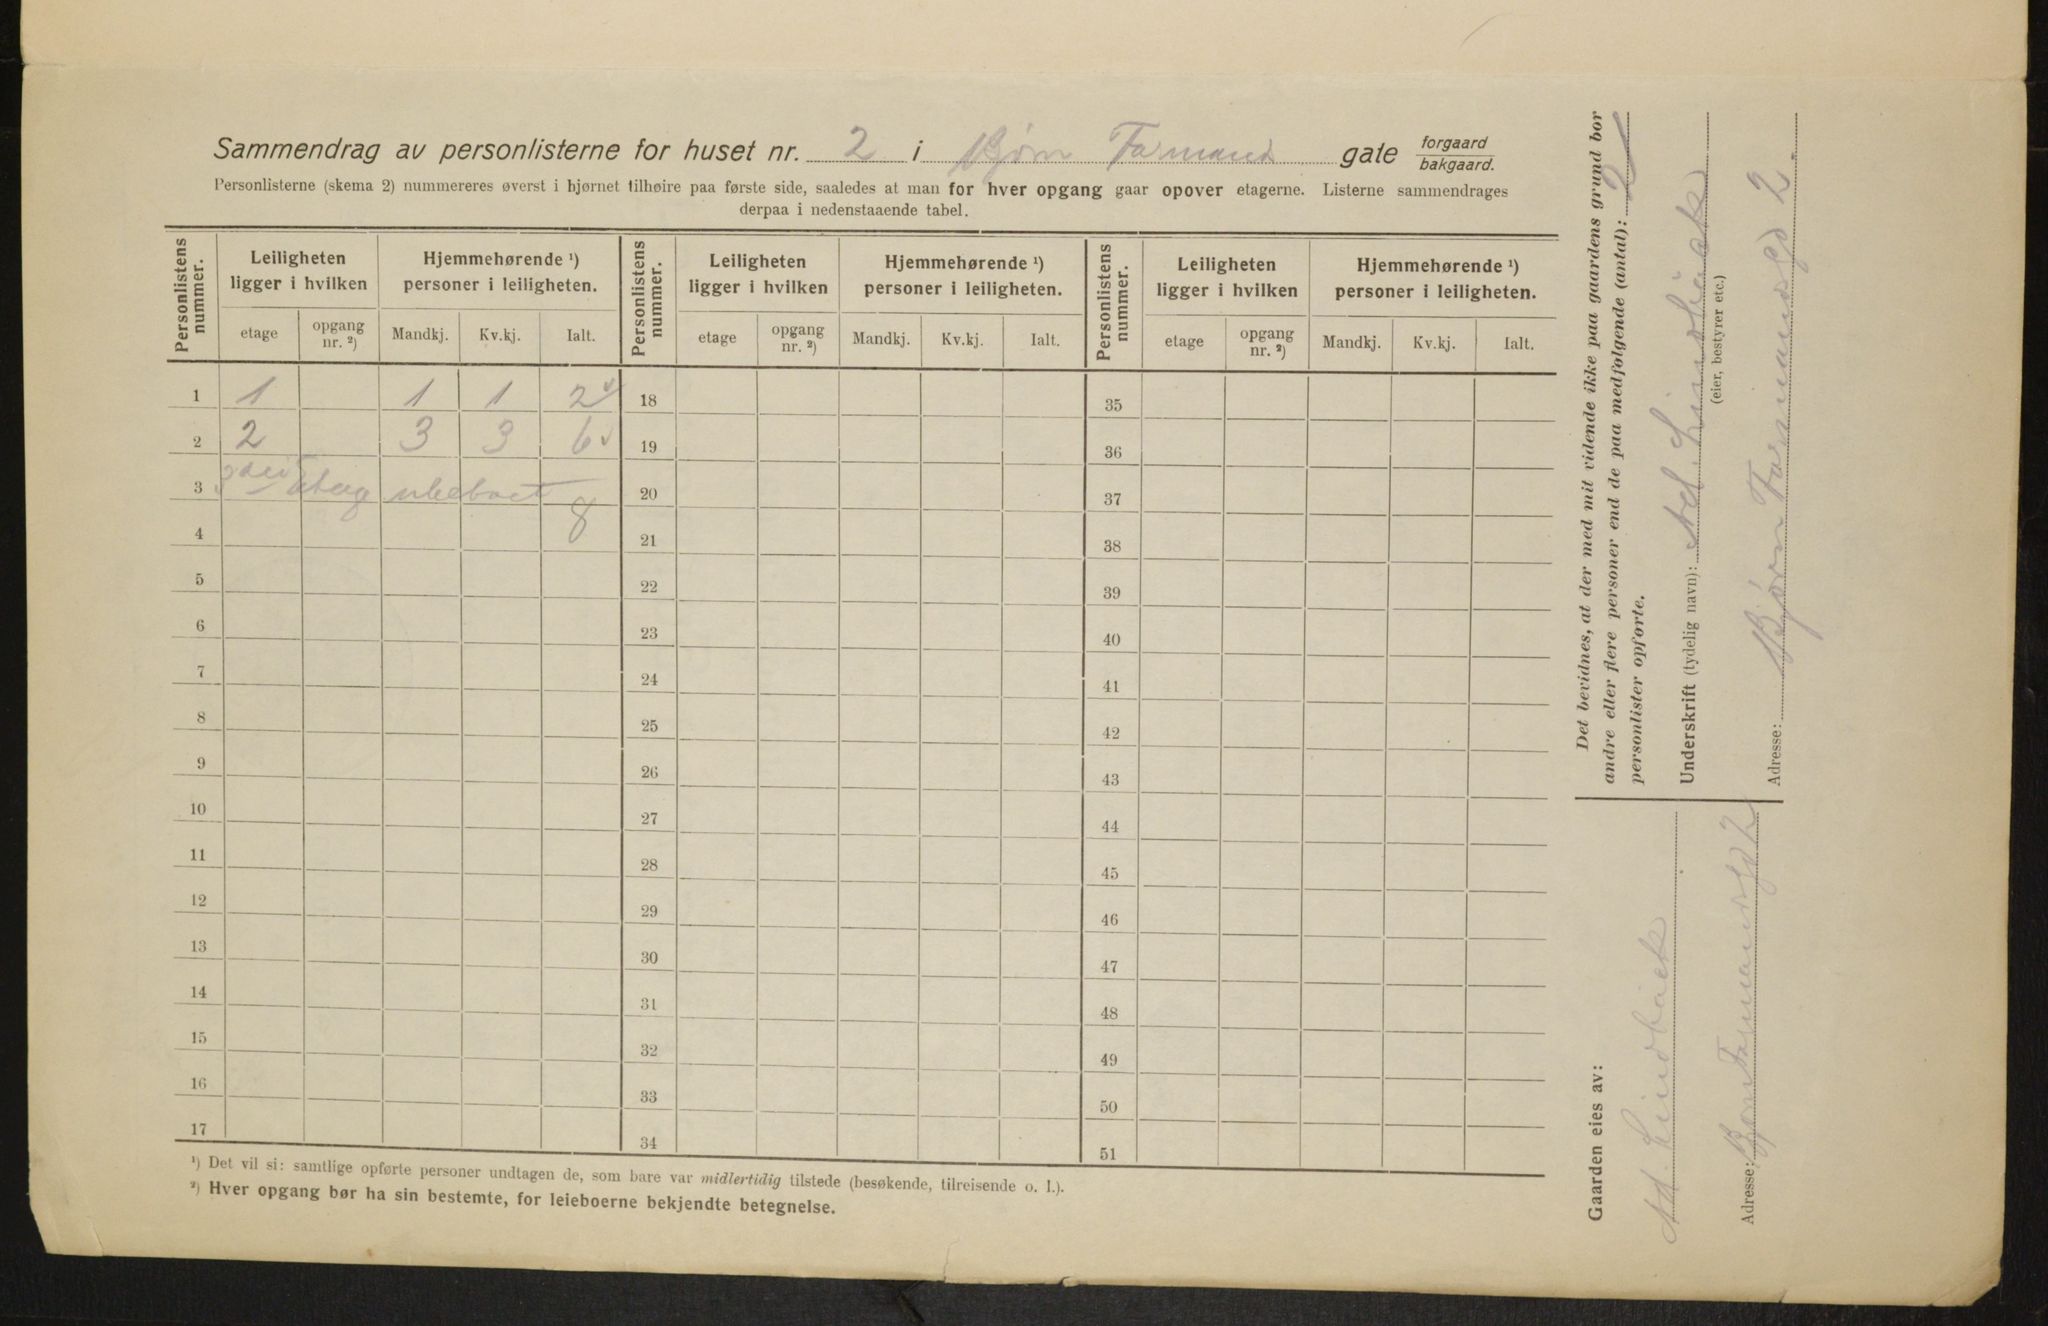 Sammendrag av personlisterne for huset nr. 2 i Bjørn Farmand gate forgaard bakgaard.
Personlisterne (skema 2) nummereres øverst i hjørnet tilhøire paa første side, saaledes at man for hver opgang gaar opover etagerne. Listerne sammendrages
derpaa i nedenstaaende tabel.
Personlistens nummer. Leiligheten ligger i hvilken Hjemmehørende ¹) personer i leiligheten. Personlistens nummer. Leiligheten ligger i hvilken Hjemmehørende ¹) personer i leiligheten. Personlistens nummer. Leiligheten ligger i hvilken Hjemmehørende ¹) personer i leiligheten.
etage opgang nr. ²) Mandkj. Kv.kj. Ialt. etage opgang nr. ²) Mandkj. Kv.kj. Ialt. etage opgang nr. ²) Mandkj. Kv.kj. Ialt.
1 1 1 1 2 18 35
2 2 3 3 6 19 36
3 Etage ubeboet 20 37
4 8 21 38
5 22 39
6 23 40
7 24 41
8 25 42
9 26 43
10 27 44
11 28 45
12 29 46
13 30 47
14 31 48
15 32 49
16 33 50
17 34 51
¹) Det vil si: samtlige opførte personer undtagen de, som bare var midlertidig tilstede (besøkende, tilreisende o. l.).
²) Hver opgang bør ha sin bestemte, for leieboerne bekjendte betegnelse.
Det bevidnes, at der med mit vidende ikke paa gaardens grund bor
andre eller flere personer end de paa medfølgende (antal): 2
personlister opførte.
Underskrift (tydelig navn): Ad. Lindbäck
(eier, bestyrer etc.)
Adresse: Bjørn Farmandsgd 2.
Gaarden eies av:
Ad. Lindbäck
Adresse: Bjørn Farmandsgd 2